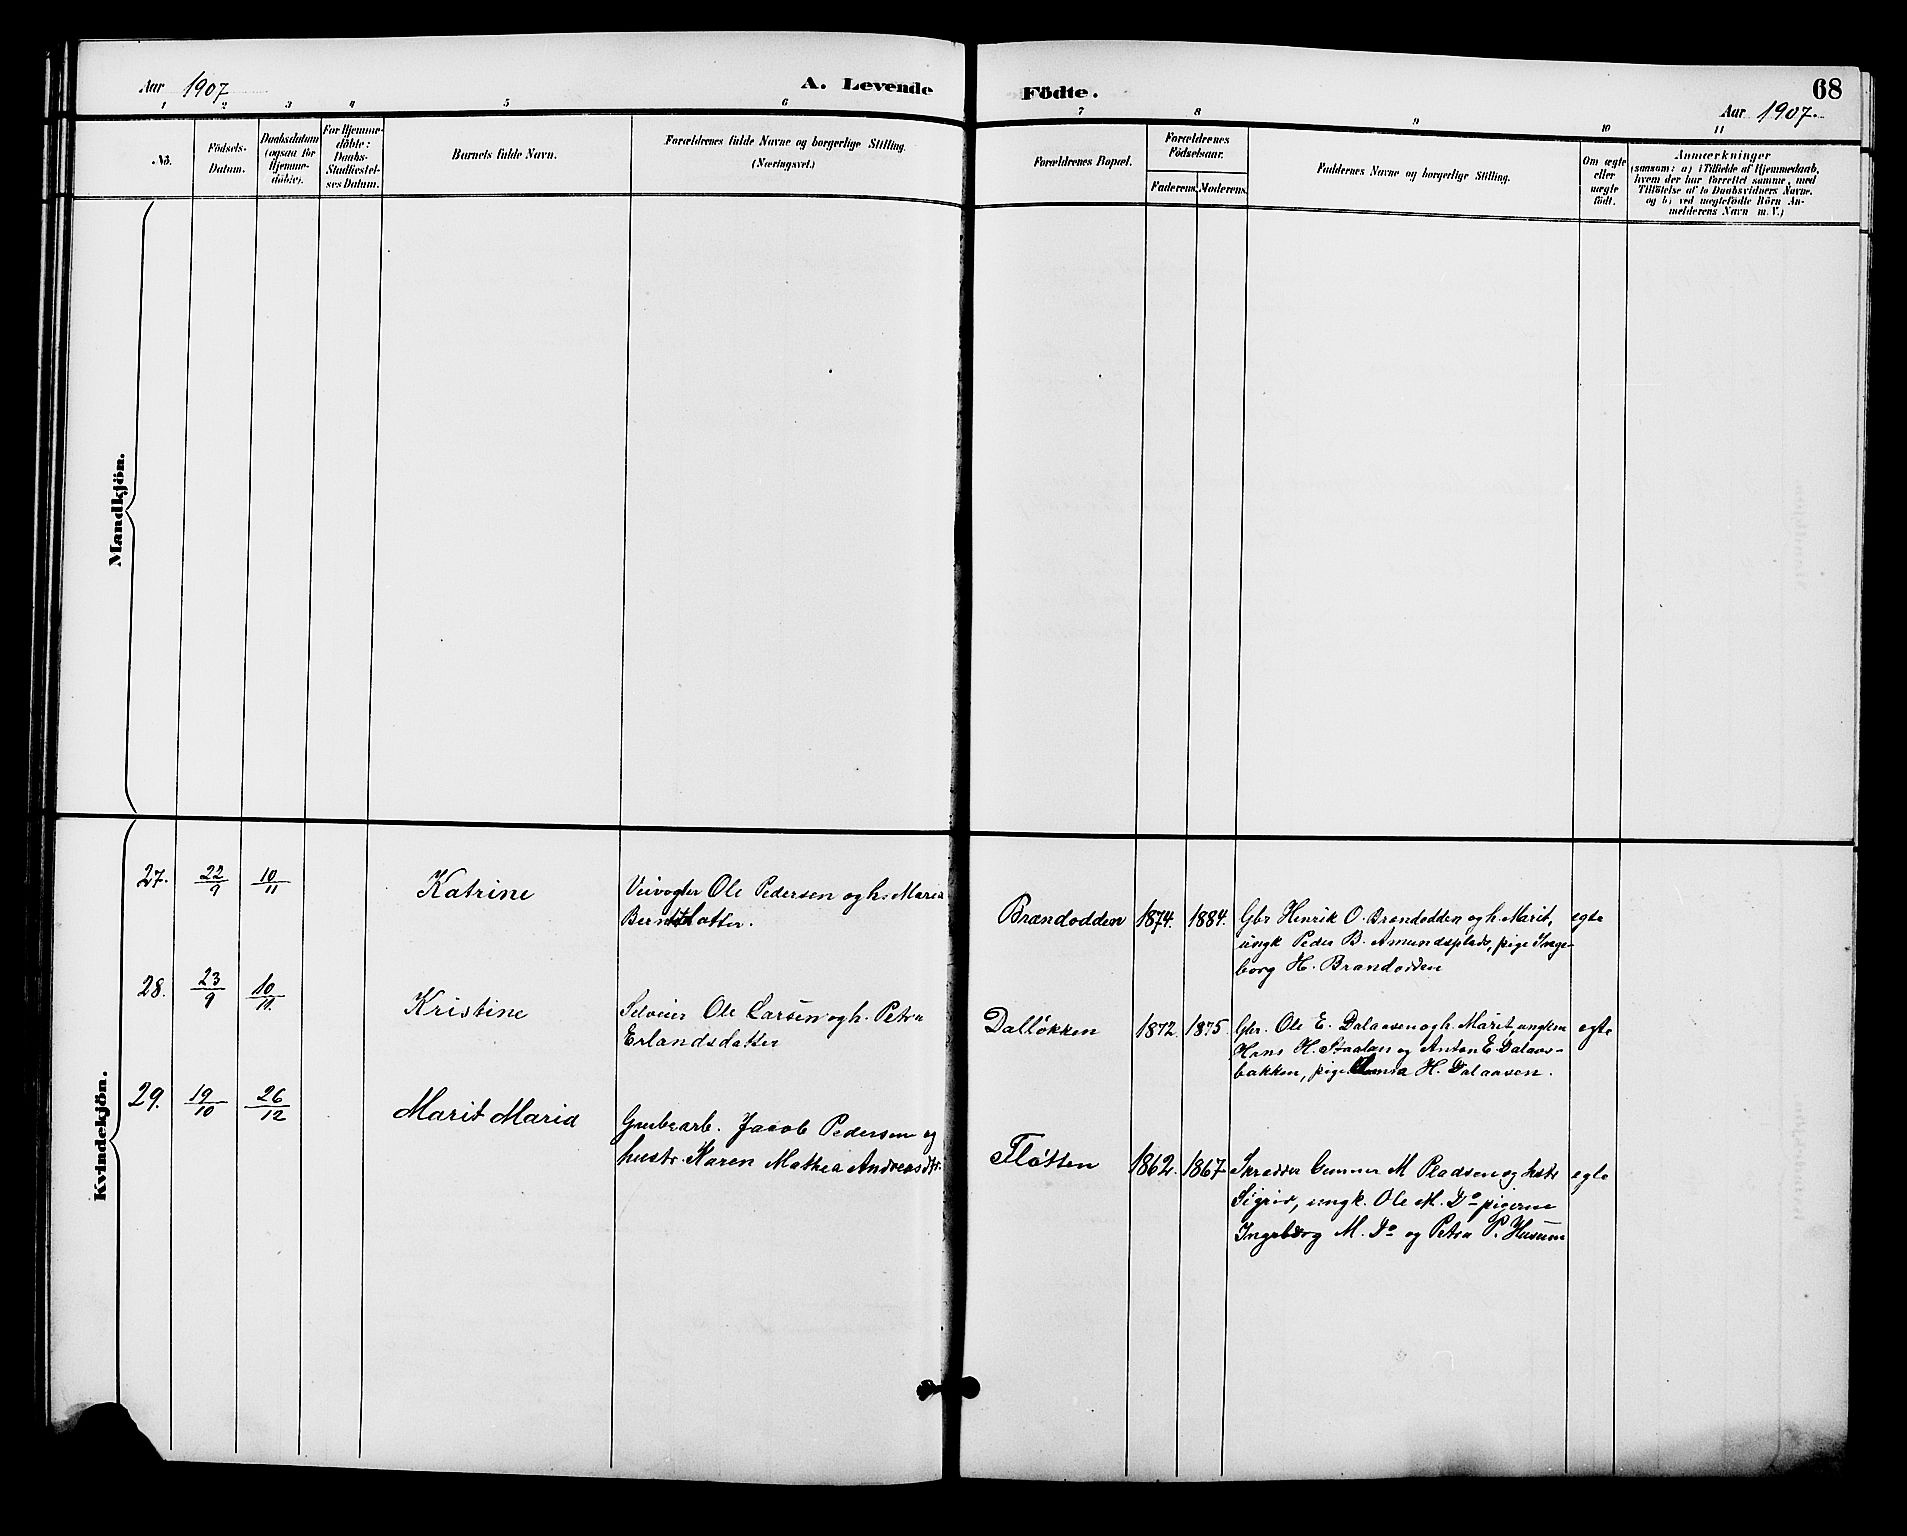 Aar 1907
A. Levende Födte.
68
Aar 1907.
1 2 3 4 5 6 7 8 9 10 11
No.
Födsels-
Datum.
Daabsdatum
(ogsaa for
Hjemme-
döbte).
For Hjemme-
döbte:
Daabs-
Stadfæstel-
ses Datum.
Barnets fulde Navn.
Forældrenes fulde Navne og borgerlige Stilling.
(Næringsvei.)
Forældrenes Bopæl.
Forældrenes
Födselsaar.
Faderens. Moderens.
Faddernes Navne og borgerlige Stilling.
Om ægte
eller
uægte
födt.
Anmærkninger
(saasom: a) i Tilfælde af Hjemmedaab,
hvem der har forrettet samme, med
Tilföielse af to Daabsvidners Navne.
og b) ved uægtefödte Börn An-
melderens Navn m. V.)
Mandkjön.
Kvindekjön.
27. 22/9 10/11 Katrine
Veivogter Ole Pedersen og h. Maria
Berntsdatter.
Brændodden 1874. 1884.
Gbr Henrik O. Brændodden og h. Marit,
ungk Peder B. Amundsplads, pige Inge-
borg H. Brændodden
egte
28. 23/9 10/11. Kristine
Selveier Ole Larsen og h. Petra
Erlandsdatter
Dalløkken 1872. 1875.
Gbr. Ole E. Dalaasen og h. Marit, ungkm
Hans H. Staalan og Anton E. Dalaas-
bakken, pige H. Dalaasen.
egte
29. 19/10 26/12 Marit Maria
Grubearb. Jacob Pedersen og
hustr. Karen Mathea Andreasdtr.
Fløtten 1862. 1867
Skrædder Gunner M Pladsen og hustr
Sigrid, ungk. Ole M. Do pigerne
Ingeborg M. Do og Petra P. Husum
egte